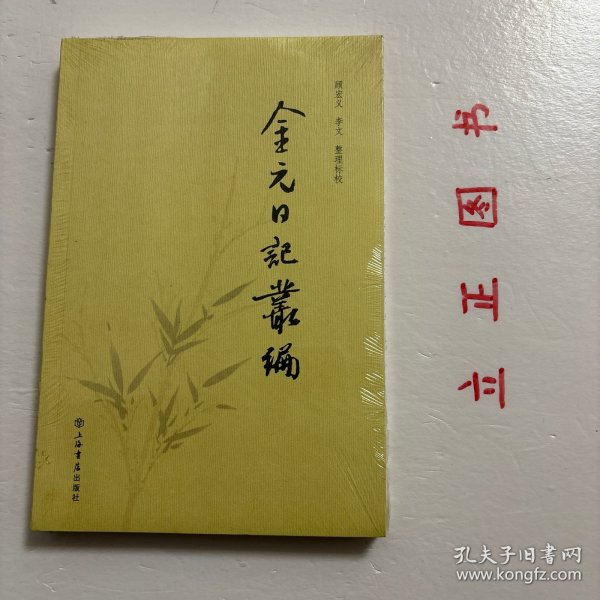 顾宏义 李文 整理标校
金元日記叢编
上海書店出版社
书图正立
孔夫子旧書网
www.kongfz.com